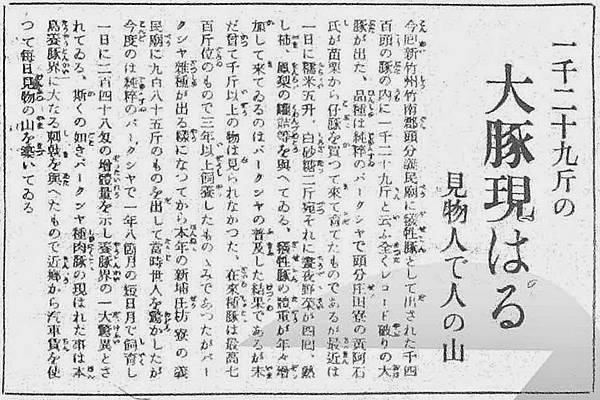 一千二十九斤の
大豚現はる
見物人で人の山
今回新竹州竹南郡頭分義民廟に犠牲豚として出された千四
百頭の豚の内に一千二十九斤と云ふ全くレコード破りの大
豚が出た、品種は純粋のバークシヤで頭分庄田寮の黄阿石
氏が苗栗から仔豚を買つて来て育てたものであるが最近は
一日に糯米五升、白砂糖二斤宛それに晝夜野菜が四回、熟
し柿、鳳梨の罐詰等を與へてゐる、犠牲豚の體重が年々増
加して来てゐるのはバークシヤの普及した結果であるが未
だ曾て千斤以上の物は見られなかつた、在來種豚は最高七
百斤位のもので三年以上飼養したものゝみであつたがバー
クシヤ雑種が出る様になつてから本年の新埔庄枋寮の義
民廟に九百八十五斤のものを出して當時世人を驚かしたが
今度のは純粋のバークシヤで一年八箇月の短日月で飼育し
一日に二百四十八匁の増體量を示し養豚界の一大驚異とさ
れてゐる、斯くの如きバークシヤ種肉豚の現はれた事は本
島養豚界に大なる刺戟を與へたもので近郷から汽車賃を使
つて毎日見物の山を築いてゐる